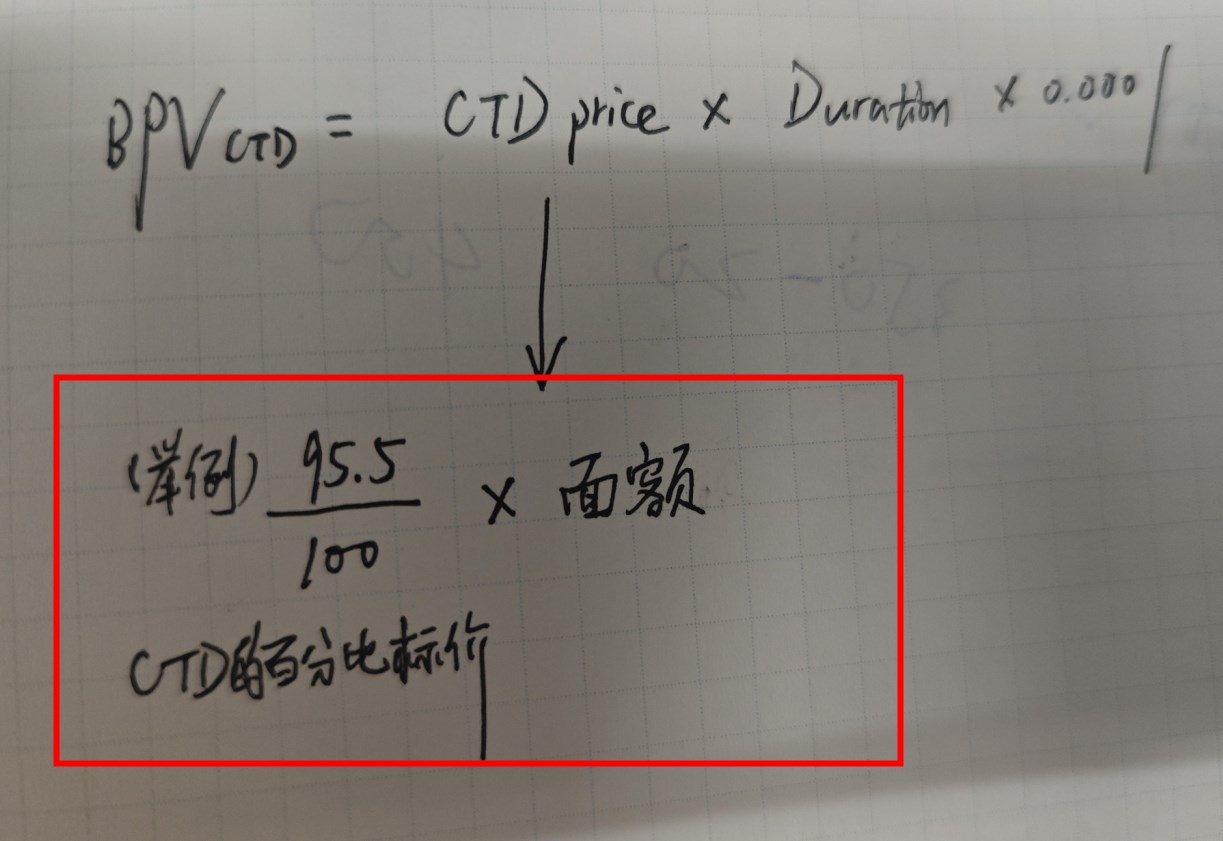 BPV CTD = CTD price × Duration × 0.0001
(举例) 95.5 / 100 × 面额
CTD的百分比标价